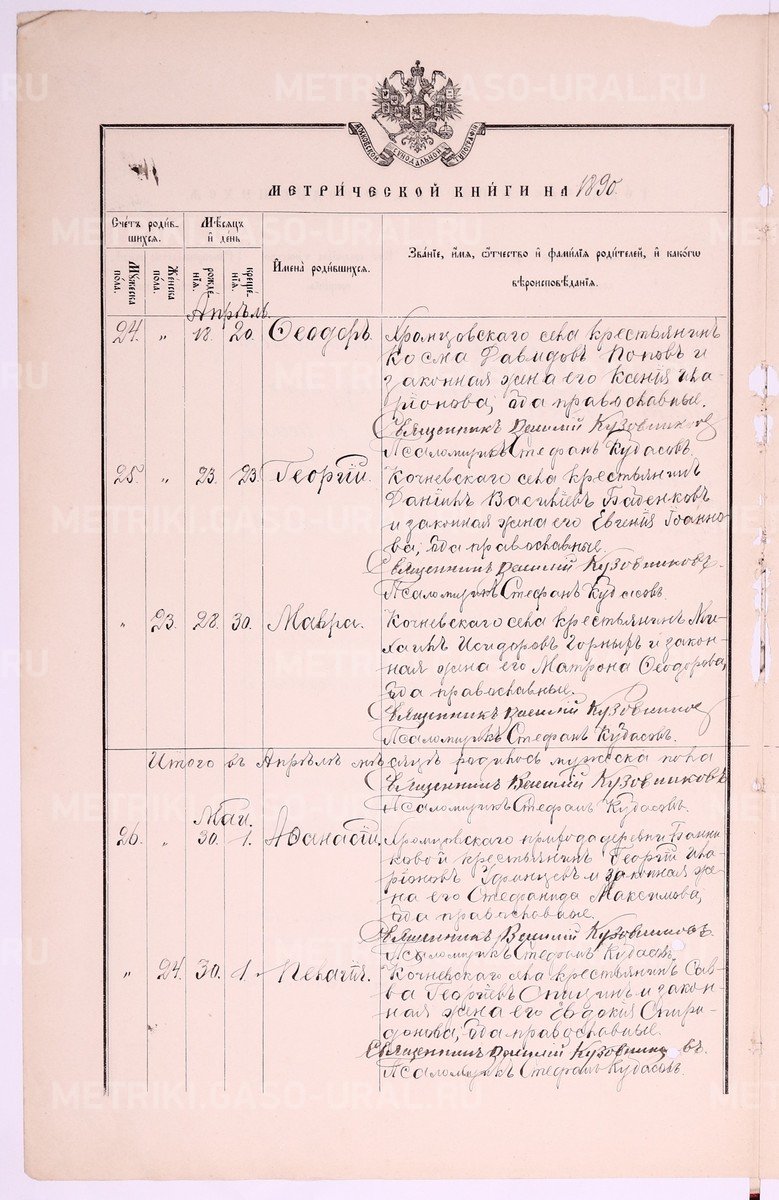 МОСКОВСКОЙ СѴНОДАЛЬНОЙ ТИПОГРАФІИ
МЕТРИ́ЧЕСКОЙ КНИ́ГИ НА 1890.
Сче́тъ роди́в-
шихся.
Мѣ́сяцъ
и҆ де́нь
И҆мена̀ роди́вшихся.
Зва́нїе, и҆́мя, ѻ҆́тчество и҆ фами́лїя роди́телей, и҆ како́гѡ
вѣроисповѣ́данїя.
Му́жеска
по́ла.
Же́нска
по́ла.
рожде́-
нїя.
креще́-
нїя.
Апрѣль.
24. „ 18. 20. Ѳеодоръ. Хромцовскаго села крестьянинъ
Косма Давидовъ Поповъ и
законная жена его Ксенія Ила-
ріонова, оба православные.
Священникъ Василій Кузовниковъ
Псаломщикъ Стефанъ Кудасовъ.
25. „ 23. 23. Георгій. Кочневскаго села крестьянинъ
Даніилъ Васильевъ Баденковъ
и законная жена его Евгенія Іоанно-
ва, оба православные.
Священникъ Василій Кузовниковъ.
Псаломщикъ Стефанъ Кудасовъ.
„ 23. 28. 30. Мавра. Кочневскаго села крестьянинъ Ми-
хаилъ Исидоровъ Горныхъ и закон-
ная жена его Матрона Ѳеодорова,
оба православные.
Священникъ Василій Кузовниковъ
Псаломщикъ Стефанъ Кудасовъ.
Итого въ Апрѣлѣ мѣсяцѣ родилось мужеска пола
Священникъ Василій Кузовниковъ
Псаломщикъ Стефанъ Кудасовъ.
Май.
26. „ 30. 1. Аѳанасій. Хромцовскаго прихода деревни Банни-
ковой крестьянинъ Георгій Ила-
ріоновъ Уфимцевъ и законная же-
на его Стефанида Максимова,
оба православные.
Священникъ Василій Кузовниковъ.
Псаломщикъ Стефанъ Кудасовъ.
„ 24. 30. 1. Пелагія. Кочневскаго села крестьянинъ Сав-
ва Георгіевъ Спицинъ и закон-
ная жена его Евдокія Спири-
донова, оба православные.
Священникъ Василій Кузовниковъ.
Псаломщикъ Стефанъ Кудасовъ.
METRIKI.GASO-URAL.RU